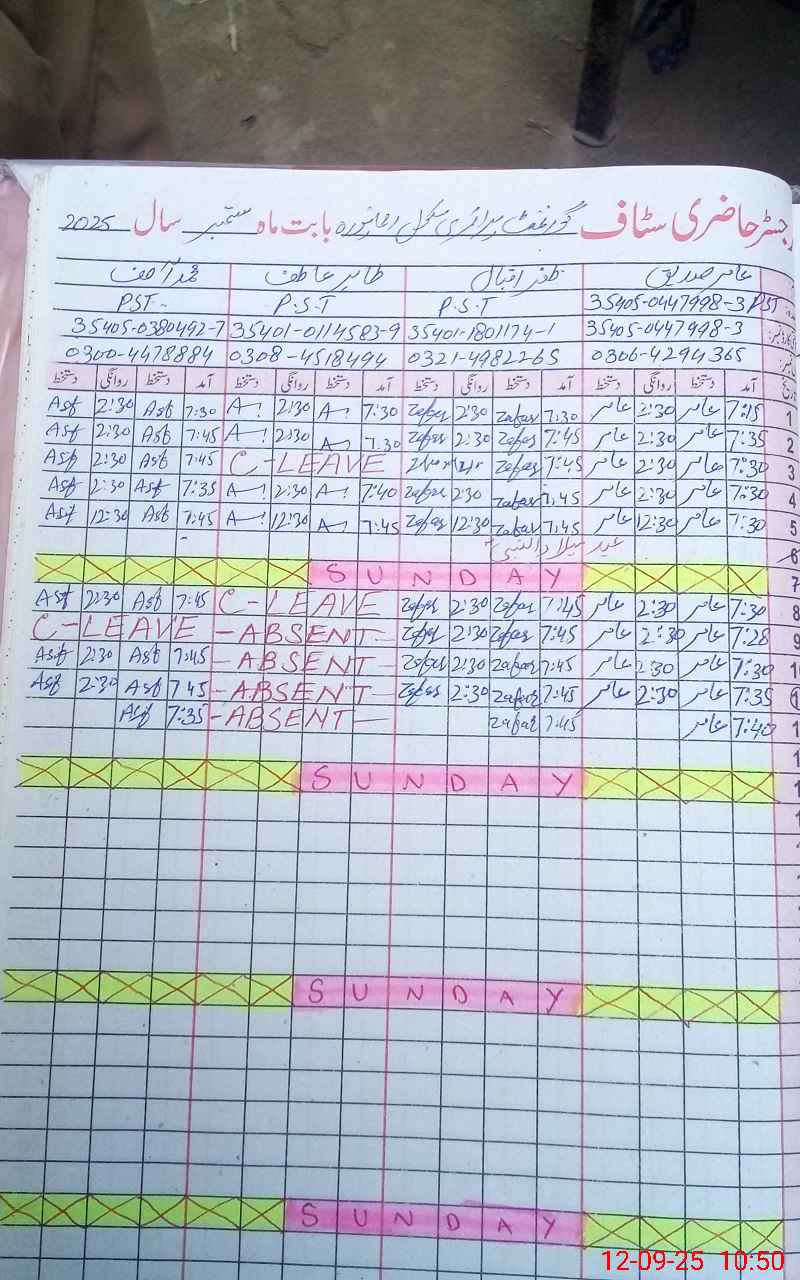 رجسٹر حاضری سٹاف گورنمنٹ پرائمری سکول بابت ماہ ستمبر سال 2025
عامر صدیق ظفر اقبال طاہر عاطف محمد آصف
35405-0447998-3 PST P.S.T P.S.T PST-
35405-0447998-3 35401-1801174-1 35401-0114583-9 35405-0380492-7
0306-4294365 0321-4982265 0308-4518494 0300-4478884
آمد دستخط روانگی دستخط آمد دستخط روانگی دستخط آمد دستخط روانگی دستخط آمد دستخط روانگی دستخط
1 7:15 عامر 2:30 عامر 7:30 zafar 2:30 zafar 7:30 A 2:30 A 7:30 Asf 2:30 Asf
2 7:35 عامر 2:30 عامر 7:45 zafar 2:30 zafar 7:30 A 2:30 A 7:45 Asf 2:30 Asf
3 7:30 عامر 2:30 عامر 7:45 zafar C-LEAVE 7:45 Asf 2:30 Asf
4 7:30 عامر 2:30 عامر 7:45 zafar 2:30 zafar 7:40 A 2:30 A 7:35 Asf 2:30 Asf
5 7:30 عامر 12:30 عامر 7:45 zafar 12:30 zafar 7:45 A 12:30 A 7:45 Asf 12:30 Asf
6 عید میلاد النبی
7 SUNDAY
8 7:30 عامر 2:30 عامر 7:45 zafar 2:30 zafar C-LEAVE 7:45 Asf 2:30 Asf
9 7:28 عامر 2:30 عامر 7:45 zafar 2:30 zafar -ABSENT- C-LEAVE
10 7:30 عامر 2:30 عامر 7:45 zafar 2:30 zafar -ABSENT- 7:45 Asf 2:30 Asf
7:35 عامر 2:30 عامر 7:45 zafar 2:30 zafar -ABSENT- 7:45 Asf 2:30 Asf
7:40 عامر 7:45 zafar -ABSENT- 7:35 Asf
SUNDAY
SUNDAY
SUNDAY
12-09-25 10:50